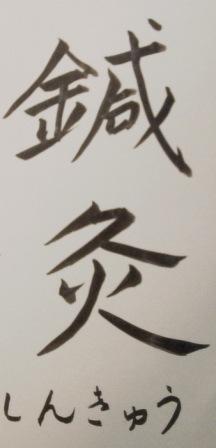 鍼灸
しんきゅう